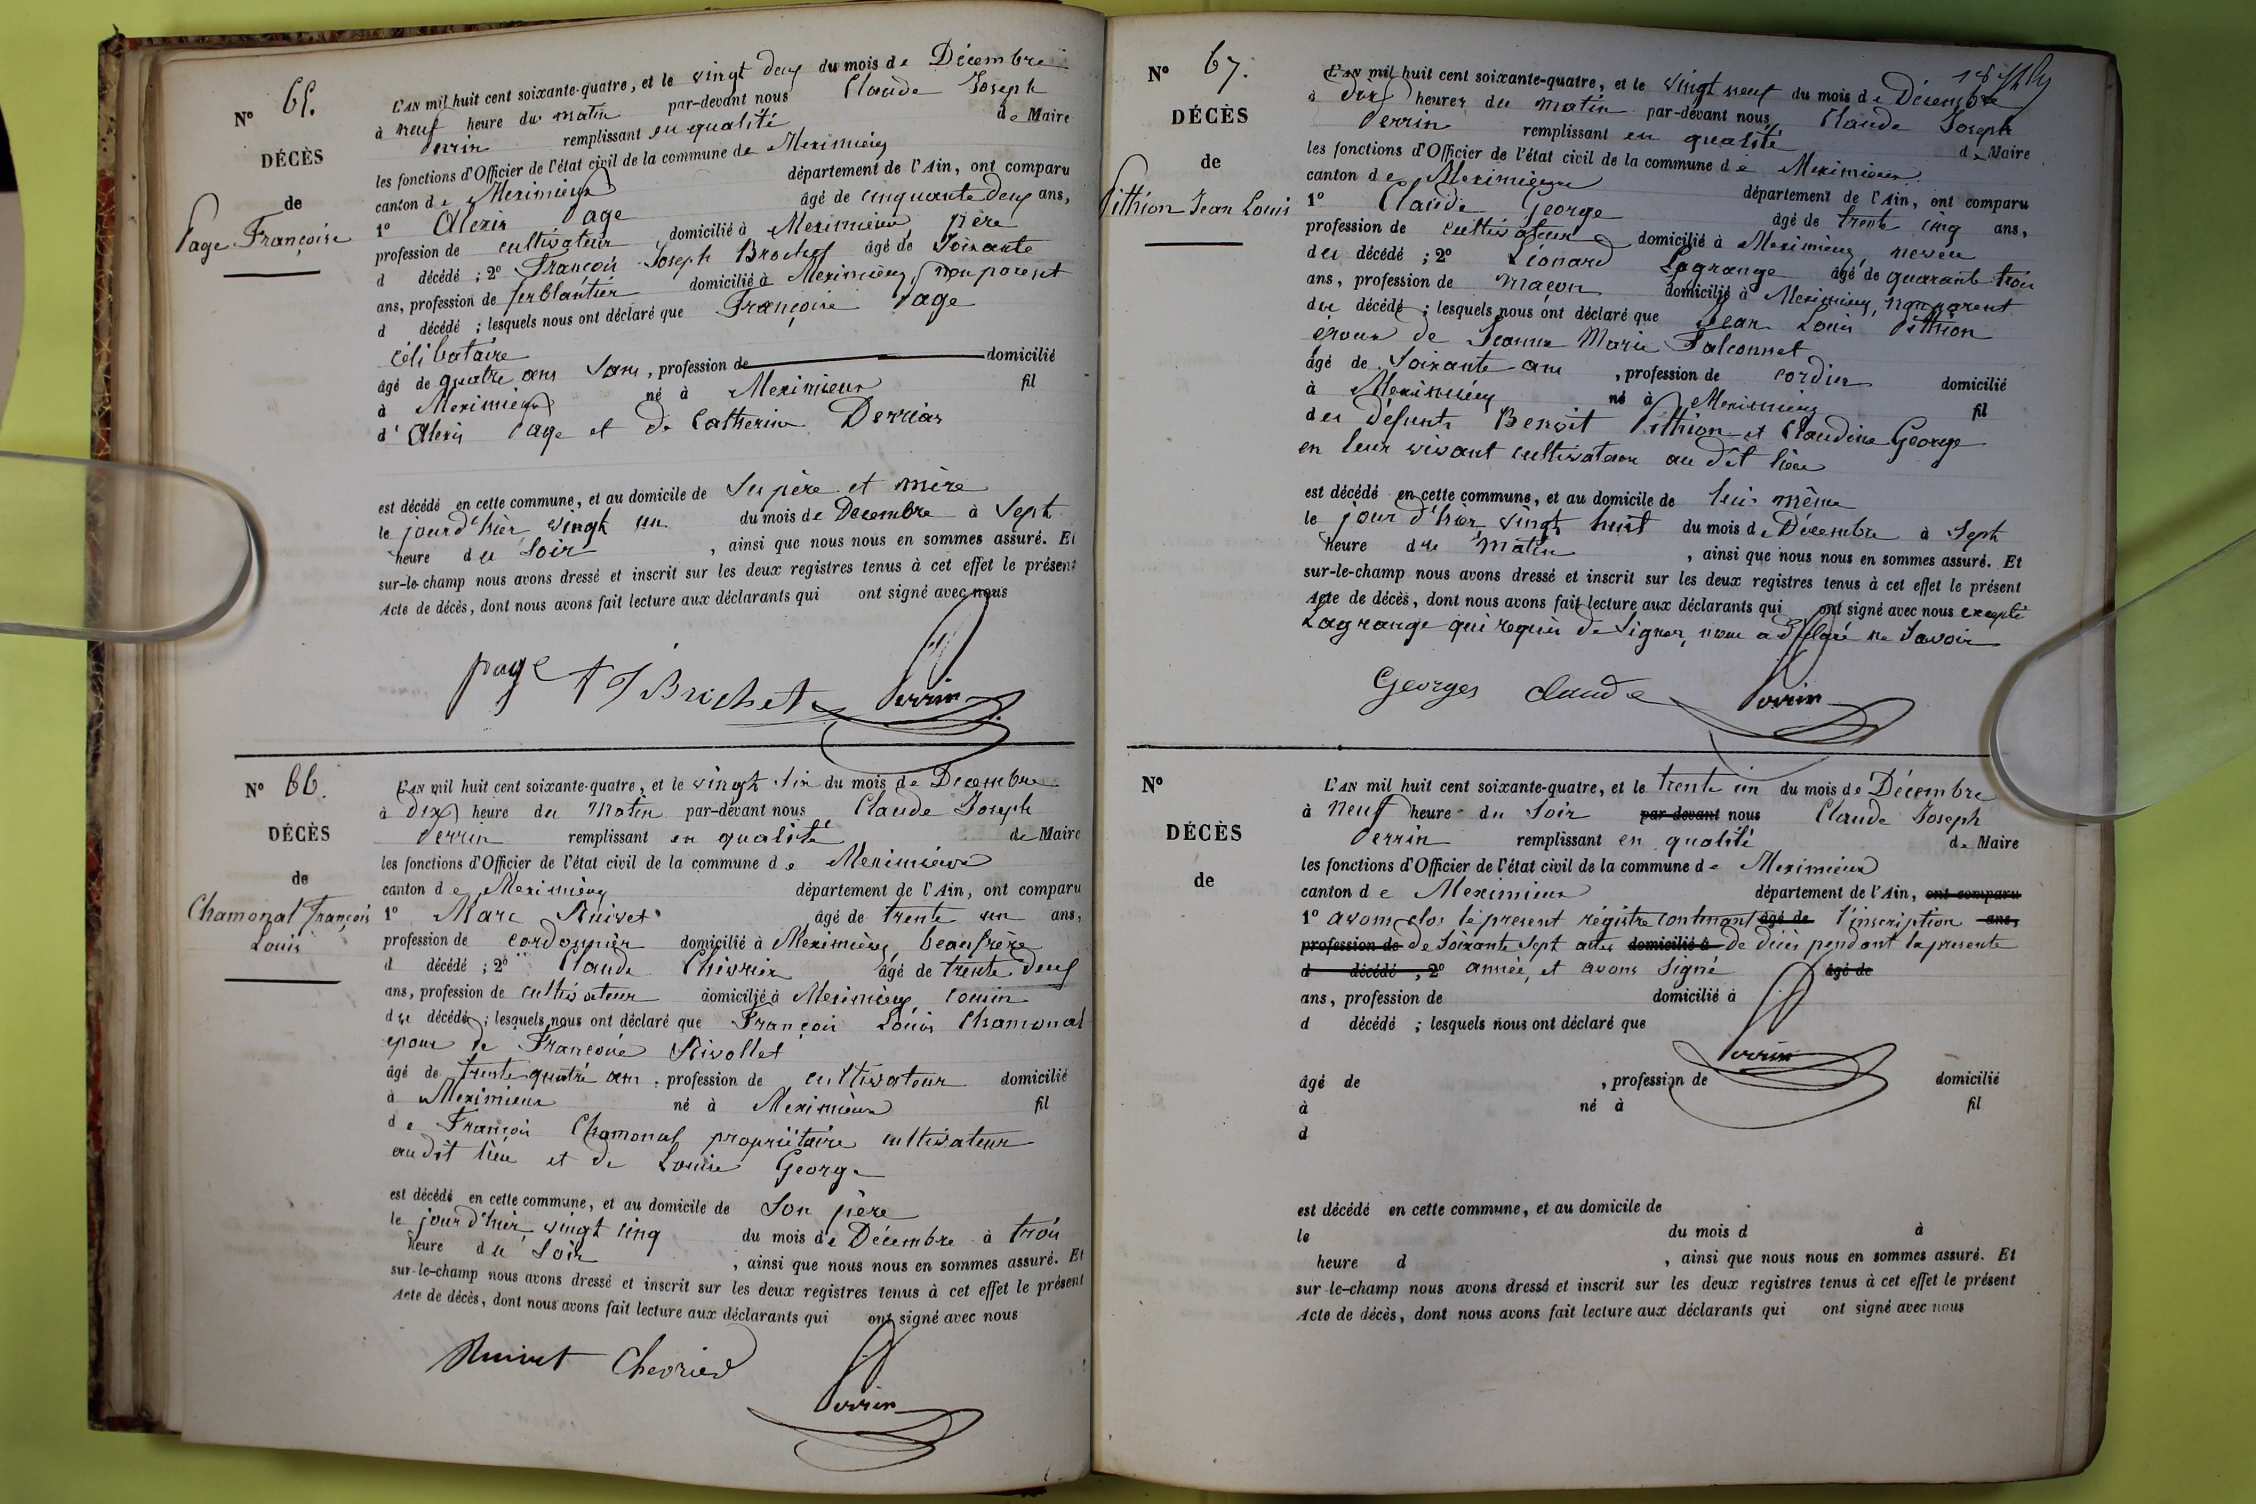 N° 65.
DÉCÈS
de
Page Françoise
L'AN mil huit cent soixante-quatre, et le vingt deux du mois de Décembre
à neuf heure du matin par-devant nous Claude Joseph
Perrin remplissant en qualité de Maire
les fonctions d'Officier de l'état civil de la commune de Meximieux
canton de Meximieux département de l'Ain, ont comparu
1° Alexis Page âgé de cinquante deux ans,
profession de cultivateur domicilié à Meximieux, père
d décédé ; 2° François Joseph Brochet âgé de soixante
ans, profession de ferblantier domicilié à Meximieux, non parent
d décédé ; lesquels nous ont déclaré que Françoise Page
célibataire
âgé de quatre ans sans, profession de domicilié
à Meximieux né à Meximieux fil
d'Alexis Page et de Catherine Derrias
est décédé en cette commune, et au domicile de ses père et mère
le jour d'hier vingt un du mois de Décembre à sept
heure du soir, ainsi que nous nous en sommes assuré. Et
sur-le-champ nous avons dressé et inscrit sur les deux registres tenus à cet effet le présent
Acte de décès, dont nous avons fait lecture aux déclarants qui ont signé avec nous
page f J Brichet Perrin
N° 66.
DÉCÈS
de
Chamonal François
Louis
L'AN mil huit cent soixante-quatre, et le vingt six du mois de Décembre
à dix heure du matin par-devant nous Claude Joseph
Perrin remplissant en qualité de Maire
les fonctions d'Officier de l'état civil de la commune de Meximieux
canton de Meximieux département de l'Ain, ont comparu
1° Marc Ruivet âgé de trente un ans,
profession de cordonnier domicilié à Meximieux, beaufrère
d décédé ; 2° Claude Chevrier âgé de trente deux
ans, profession de cultivateur domicilié à Meximieux, cousin
du décédé ; lesquels nous ont déclaré que François Louis Chamonal
epoux de Françoise Rivollet
âgé de trente quatre ans, profession de cultivateur domicilié
à Meximieux né à Meximieux fil
de François Chamonal propriétaire cultivateur
au dit lieu et de Louise George
est décédé en cette commune, et au domicile de son père
le jour d'hier vingt cinq du mois de Décembre à trois
heure du soir, ainsi que nous nous en sommes assuré. Et
sur-le-champ nous avons dressé et inscrit sur les deux registres tenus à cet effet le présent
Acte de décès, dont nous avons fait lecture aux déclarants qui ont signé avec nous
Ruivet Chevrier
Perrin
N° 67.
DÉCÈS
de
Pithion Jean Louis
L'AN mil huit cent soixante-quatre, et le vingt neuf du mois de Décembre
à dix heures du matin par-devant nous Claude Joseph
Perrin remplissant en qualité de Maire
les fonctions d'Officier de l'état civil de la commune de Meximieux
canton de Meximieux département de l'Ain, ont comparu
1° Claude George âgé de trente cinq ans,
profession de cultivateur domicilié à Meximieux, neveu
du décédé ; 2° Léonard Lagrange âgé de quarante trois
ans, profession de maçon domicilié à Meximieux, non parent
du décédé ; lesquels nous ont déclaré que Jean Louis Pithion
epoux de Jeanne Marie Falconnet
âgé de soixante ans, profession de cordier domicilié
à Meximieux né à Meximieux fil
des défunts Benoit Pithion et Claudine George
en leur vivant cultivateurs au dit lieu
est décédé en cette commune, et au domicile de lui même
le jour d'hier vingt huit du mois de Décembre à sept
heure du matin, ainsi que nous nous en sommes assuré. Et
sur-le-champ nous avons dressé et inscrit sur les deux registres tenus à cet effet le présent
Acte de décès, dont nous avons fait lecture aux déclarants qui ont signé avec nous excepté
Lagrange qui requis de signer, nous a déclaré ne savoir
Georges claude Perrin
N°
DÉCÈS
de
L'AN mil huit cent soixante-quatre, et le trente un du mois de Décembre
à neuf heure du soir par-devant nous Claude Joseph
Perrin remplissant en qualité de Maire
les fonctions d'Officier de l'état civil de la commune de Meximieux
canton de Meximieux département de l'Ain, ont comparu
1° avons clos le présent régistre contenant âgé de l'inscription ans,
profession de de soixante sept actes domicilié à de décès pendant la presente
d décédé ; 2° année, et avons signé âgé de
ans, profession de domicilié à
d décédé ; lesquels nous ont déclaré que
Perrin
âgé de , profession de domicilié
à né à fil
d
est décédé en cette commune, et au domicile de
le du mois d à
heure d , ainsi que nous nous en sommes assuré. Et
sur-le-champ nous avons dressé et inscrit sur les deux registres tenus à cet effet le présent
Acte de décès, dont nous avons fait lecture aux déclarants qui ont signé avec nous